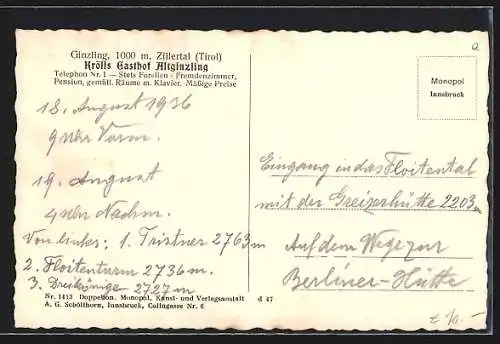 Ginzling, 1000 m, Zillertal (Tirol)
Krölls Gasthof Altginzling
Telephon Nr. 1 — Stets Forellen - Fremdenzimmer,
Pension, gemütl. Räume m. Klavier. Mäßige Preise
18. August 1936
9 Uhr Vorm.
19. August
4 Uhr Nachm.
Von links: 1. Tristner 2763 m
2. Floitenturm 2736 m.
3. Dreikönige 2727 m
Nr. 1413 Doppelton. Monopol, Kunst- und Verlagsanstalt
A. G. Schöllhorn, Innsbruck, Colingasse Nr. 6
d 47
a
Monopol
Innsbruck
Eingang in das Floitental
mit der Greizerhütte 2203m
Auf dem Wege zur
Berliner-Hütte